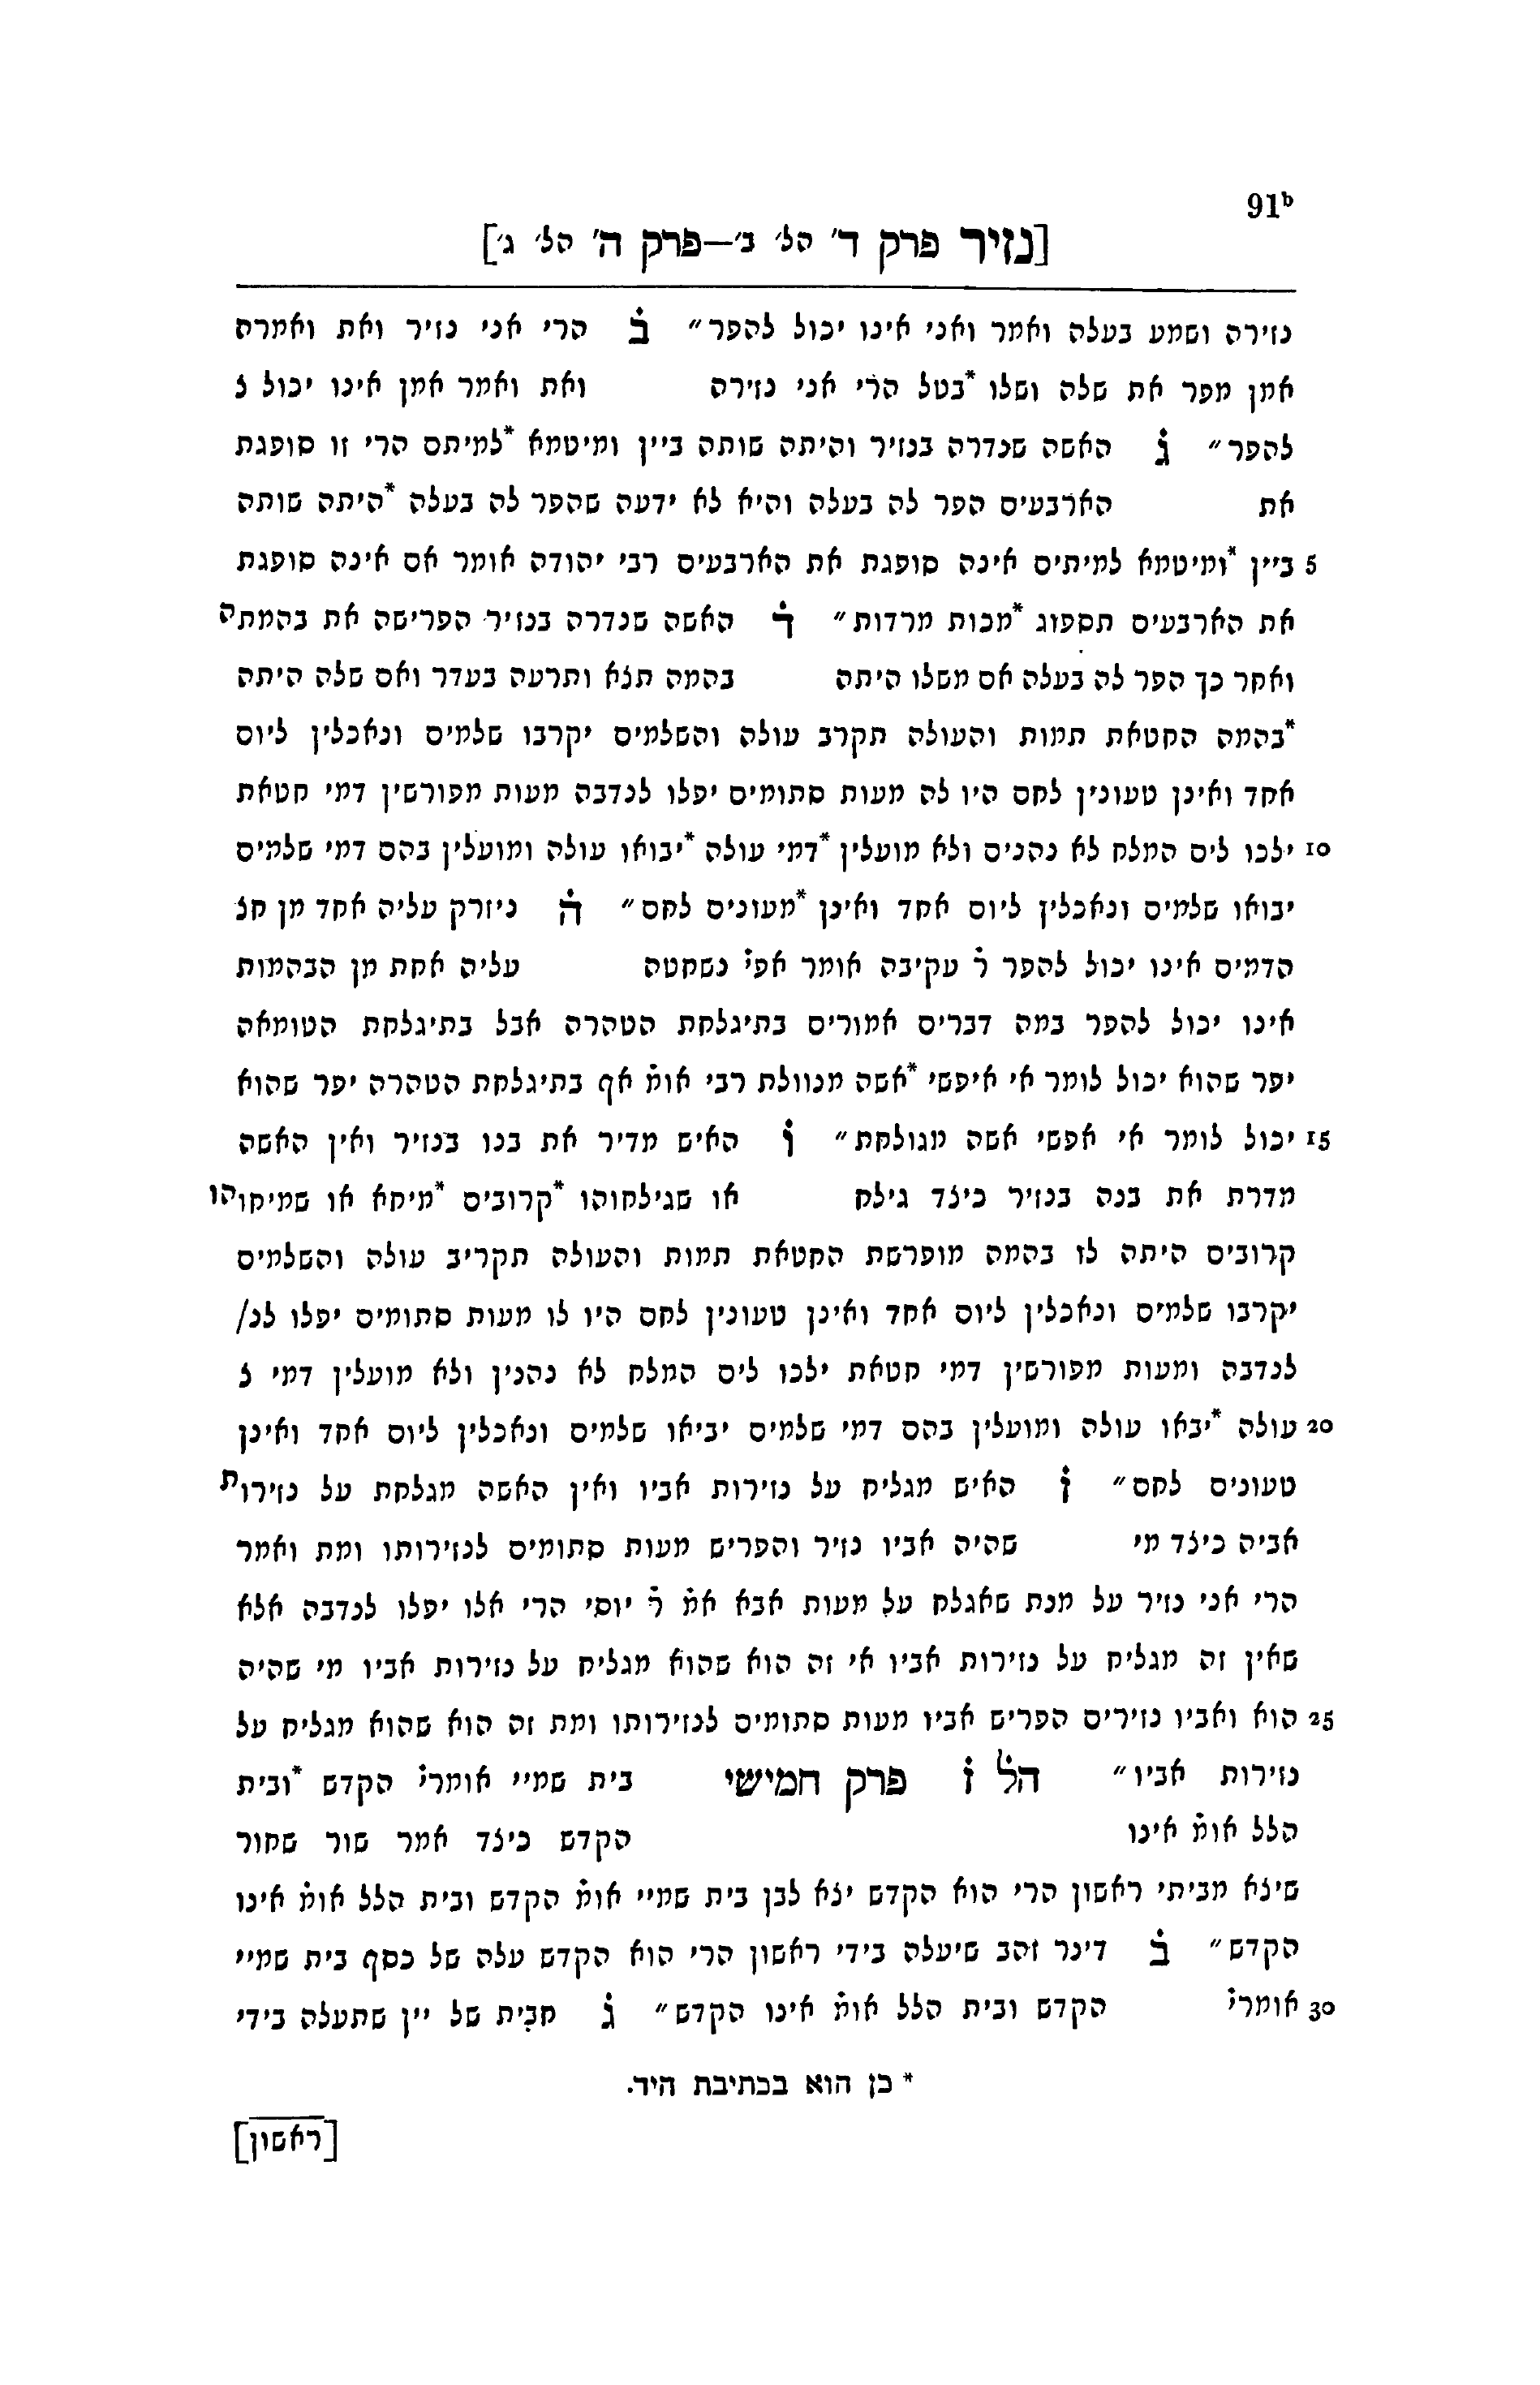 91ᵇ
[נזיר פרק ד' הל' ב'—פרק ה' הל' ג']
נזירה ושמע בעלה ואמר ואני אינו יכול להפר״ ב הרי אני נזיר ואת ואמרה
אמן מפר את שלה ושלו *בטל הרי אני נזירה ואת ואמר אמן אינו יכול ל
להפר״ ג האשה שנדרה בנזיר והיתה שותה ביין ומיטמא *למיתם הרי זו סופגת
את הארבעים הפר לה בעלה והיא לא ידעה שהפר לה בעלה *היתה שותה
5 ביין *ומיטמא למיתים אינה סופגת את הארבעים רבי יהודה אומר אם אינה סופגת
את הארבעים תספוג *מכות מרדות״ ד האשה שנדרה בנזיר הפרישה את בהמתה
ואחר כך הפר לה בעלה אם משלו היתה בהמה תצא ותרעה בעדר ואם שלה היתה
*בהמה החטאת תמות והעולה תקרב עולה והשלמים יקרבו שלמים ונאכלין ליום
אחד ואינן טעונין לחם היו לה מעות סתומים יפלו לנדבה מעות מפורשין דמי חטאת
10 ילכו לים המלח לא נהנים ולא מועלין *דמי עולה *יבואו עולה ומועלין בהם דמי שלמים
יבואו שלמים ונאכלין ליום אחד ואינן *מעונים לחם״ ה ניזרק עליה אחד מן חצ
הדמים אינו יכול להפר ר̇ עקיבה אומר אפי̇ נשחטה עליה אחת מן הבהמות
אינו יכול להפר במה דברים אמורים בתיגלחת הטהרה אבל בתיגלחת הטומאה
יפר שהוא יכול לומר אי איפשי *אשה מנוולת רבי אומ̇ אף בתיגלחת הטהרה יפר שהוא
15 יכול לומר אי אפשי אשה מגולחת״ ו האיש מדיר את בנו בנזיר ואין האשה
מדרת את בנה בנזיר כיצד גילח או שגילחוהו *קרובים *מיחא או שמיחוהו
קרובים היתה לו בהמה מופרשת החטאת תמות והעולה תקריב עולה והשלמים
יקרבו שלמים ונאכלין ליום אחד ואינן טעונין לחם היו לו מעות סתומים יפלו לנ/
לנדבה ומעות מפורשין דמי חטאת ילכו לים המלח לא נהנין ולא מועלין דמי ל
20 עולה *יבאו עולה ומועלין בהם דמי שלמים יביאו שלמים ונאכלין ליום אחד ואינן
טעונים לחם״ ז האיש מגליח על נזירות אביו ואין האשה מגלחת על נזירות
אביה כיצד מי שהיה אביו נזיר והפריש מעות סתומים לנזירותו ומת ואמר
הרי אני נזיר על מנת שאגלח על מעות אבא אמ̇ ר̇ יוסי הרי אלו יפלו לנדבה אלא
שאין זה מגליח על נזירות אביו אי זה הוא שהוא מגליח על נזירות אביו מי שהיה
25 הוא ואביו נזירים הפריש אביו מעות סתומים לנזירותו ומת זה הוא שהוא מגליח על
נזירות אביו״ הל̇ ז פרק חמישי בית שמיי אומרי̇ הקדש *ובית
הלל אומ̇ אינו הקדש כיצד אמר שור שחור
שיצא מביתי ראשון הרי הוא הקדש יצא לבן בית שמיי אומ̇ הקדש ובית הלל אומ̇ אינו
הקדש״ ב דינר זהב שיעלה בידי ראשון הרי הוא הקדש עלה של כסף בית שמיי
30 אומרי̇ הקדש ובית הלל אומ̇ אינו הקדש״ ג חבית של יין שתעלה בידי
* כן הוא בכתיבת היד.
[ראשון]